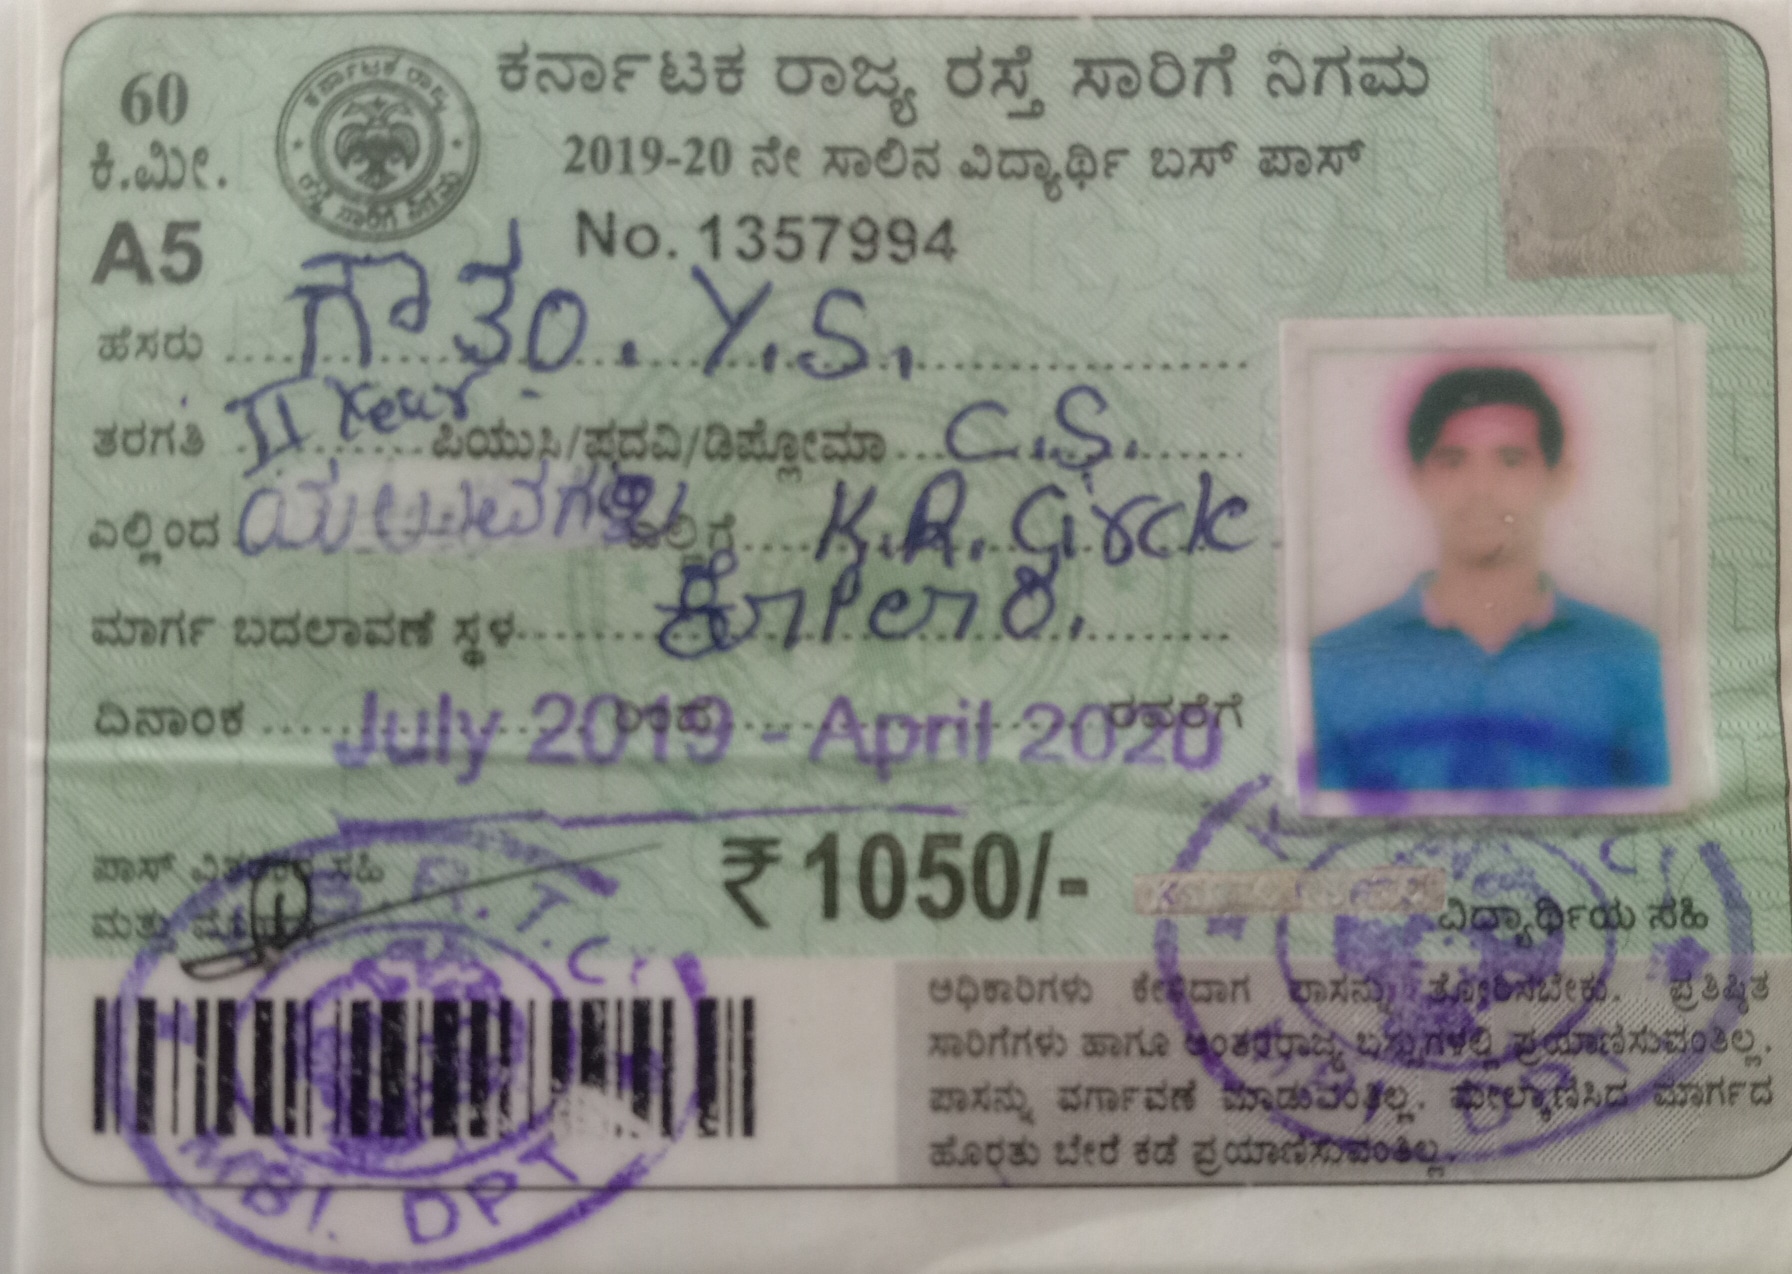 ಕರ್ನಾಟಕ ರಾಜ್ಯ ರಸ್ತೆ ಸಾರಿಗೆ ನಿಗಮ
60
ಕಿ.ಮೀ.
2019-20 ನೇ ಸಾಲಿನ ವಿದ್ಯಾರ್ಥಿ ಬಸ್ ಪಾಸ್
A5
No. 1357994
ಹೆಸರು ಗೌತಂ. Y.S.
ತರಗತಿ II Year ಪಿಯುಸಿ/ಪದವಿ/ಡಿಪ್ಲೋಮಾ C.S.
ಎಲ್ಲಿಂದ ಎಲ್ಲಿಗೆ K.R. Circle
ಮಾರ್ಗ ಬದಲಾವಣೆ ಸ್ಥಳ
ದಿನಾಂಕ ರಿಂದ ರವರೆಗೆ
July 2019 - April 2020
ಪಾಸ್ ವಿತರಕರ ಸಹಿ
ಮತ್ತು ಮೊಹರು
₹ 1050/-
ವಿದ್ಯಾರ್ಥಿಯ ಸಹಿ
ಅಧಿಕಾರಿಗಳು ಕೇಳಿದಾಗ ಪಾಸನ್ನು ತೋರಿಸಬೇಕು. ಪ್ರತಿಷ್ಠಿತ
ಸಾರಿಗೆಗಳು ಹಾಗೂ ಅಂತರರಾಜ್ಯ ಬಸ್ಸುಗಳಲ್ಲಿ ಪ್ರಯಾಣಿಸುವಂತಿಲ್ಲ.
ಪಾಸನ್ನು ವರ್ಗಾವಣೆ ಮಾಡುವಂತಿಲ್ಲ. ಮೇಲ್ಕಾಣಿಸಿದ ಮಾರ್ಗದ
ಹೊರತು ಬೇರೆ ಕಡೆ ಪ್ರಯಾಣಿಸುವಂತಿಲ್ಲ.
DPT